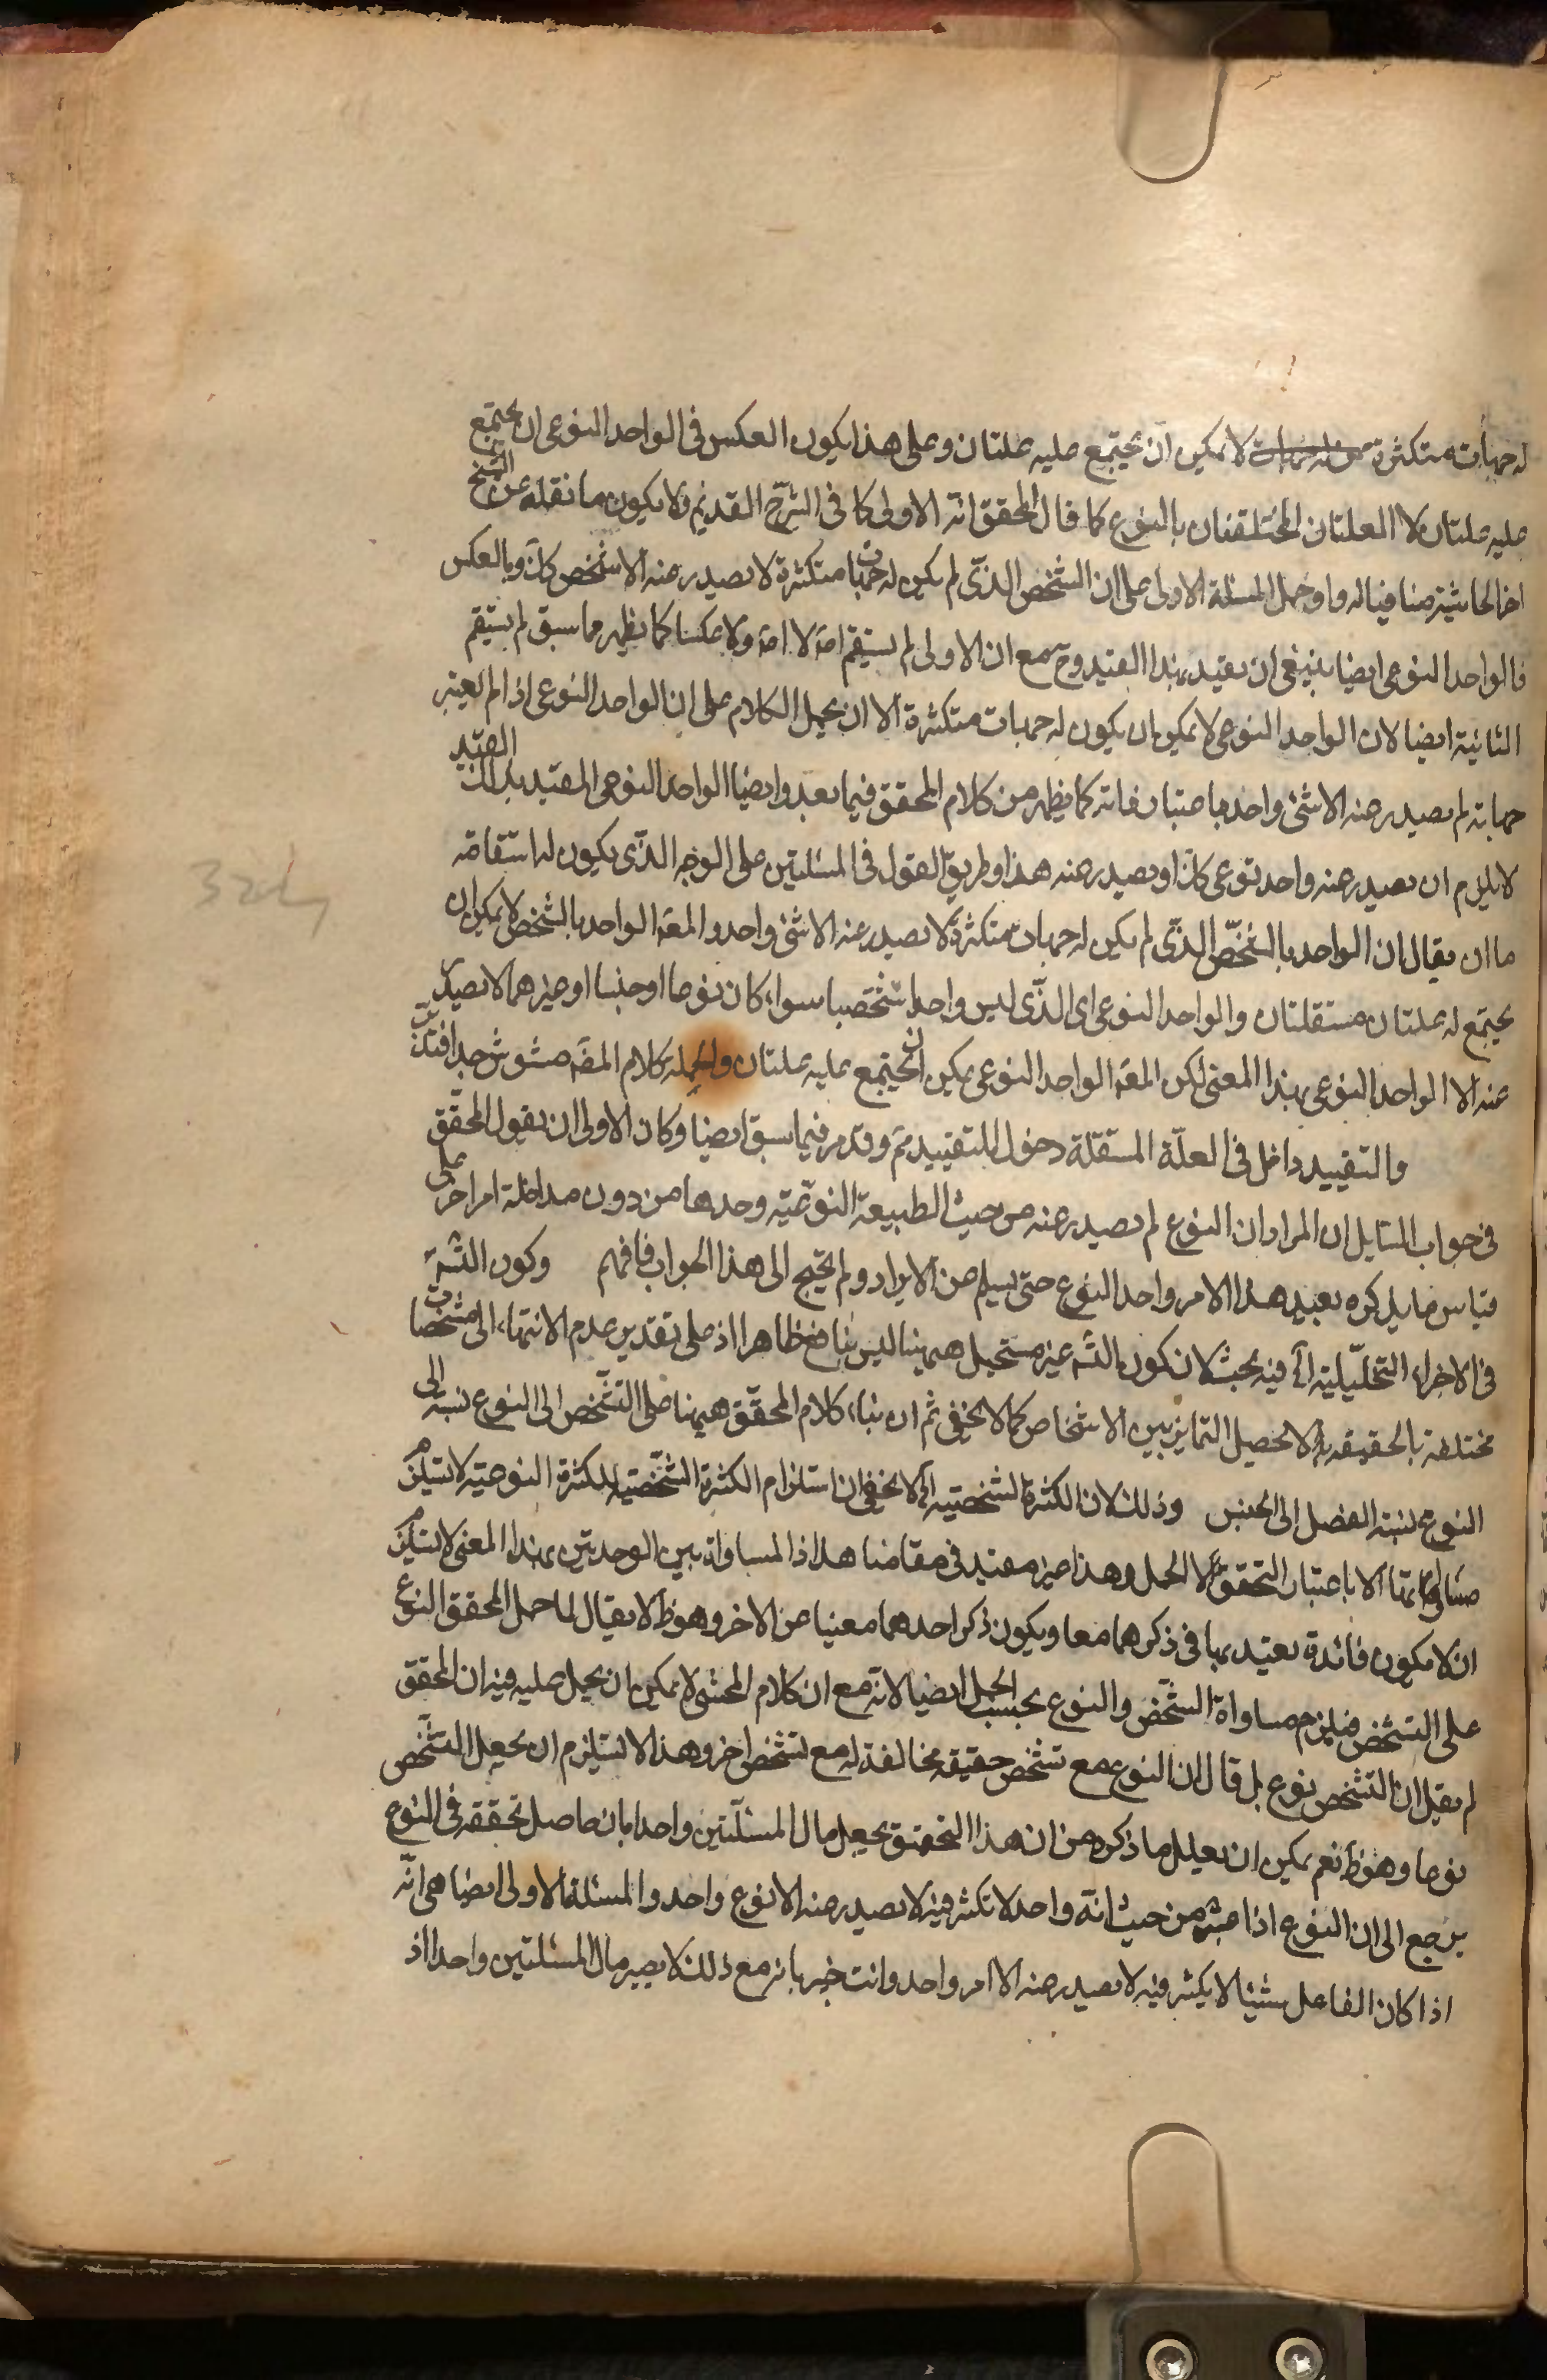 له جهات متكثرة لا يمكن ان يجتمع عليه علتان وعلى هذا يكون العكس فى الواحد النوعى ان يجتمع
عليه علتان لا العلتان المختلفتان بالنوع كما قال المحقق انه الاولى كما فى الشرح القديم ولا يكون ما نقله عن الشيخ
اخر الحاشية منافيا له ولو حمل المسئلة الاولى على ان الشخص الذى لم يكن له جهات متكثرة لا يصدر عنه الا شخص كك وبالعكس
فالواحد النوعى ايضا ينبغى ان يقيد بهذا القيد وح مع ان الاولى لم يستقم ولا عكسا كما يظهر مما سبق لم يستقم
الثانية ايضا لان الواحد النوعى لا يمكن ان يكون له جهات متكثرة الا ان يحمل الكلام على ان الواحد النوعى اذا لم يعتبر
جهاته لم يصدر عنه الا شئ واحد باعتبار ذاته كما يظهر من كلام المحقق فيما بعد وايضا الواحد النوعى المقيد بذلك القيد
لا يلزم ان يصدر عنه واحد نوعى كك او يصدر عنه هذا وطريق القول فى المسئلتين على الوجه الذى يكون له استقامة
ما ان يقال ان الواحد بالشخص الذى لم يكن له جهات متكثرة لا يصدر عنه الا شئ واحد والمعة الواحد بالشخص لا يمكن ان
يجتمع له علتان مستقلتان والواحد النوعى اى الذى ليس واحدا شخصيا سواء كان نوعا او جنسا او غيرهما لا يصدر
عنه الا الواحد النوعى بهذا المعنى لكن المعة الواحد النوعى يمكن ان يجتمع عليه علتان وبالجملة كلام المصه مشوش جدا فتدبر
والتقييد داخل فى العلة المستقلة دخول للتقييد مم وقد مر فيما سبق ايضا وكان الاولى ان يقول المحقق
فى جواب السايل ان المراد ان النوع لم يصدر عنه من حيث الطبيعة النوعية وحدها من دون مداخلة امر اخر على
قياس ما يذكره بعيد هذا الامر واحد النوع حتى يسلم من الايراد ولم يحتج الى هذا الجواب فافهم وكون التسة
فى الاجزاء التحليلية آه فيه بحث لان كون التسه غير مستحيل هيهنا ليس بنافع ظاهرا اذ على تقدير عدم الانتهاء الى مشخصات
مختلفة بالحقيقة لا يحصل التمايز بين الاشخاص كما لا يخفى ثم ان بناء كلام المحقق هيهنا على التشخص الى النوع نسبة الى
النوع نسبة الفصل الى الجنس وذلك لان الكثرة الشخصية آه لا يخفى ان استلزام الكثرة الشخصية للكثرة النوعية لا يستلزم
الا باعتبار التحقق لا الحمل وهذا غير مفيد فى مقامنا هذا اذ المساواة بين الوحدتين بهذا المعنى لا يستلزم
ان لا يكون فائدة يعتد بها فى ذكرهما معا ويكون ذكر احدهما مغنيا عن الاخر وهو ظ لا يقال لما حمل المحقق النوع
على التشخص فيلزم مساواة الشخص والنوع بحسب الحمل ايضا لانه مع ان كلام المحشى لا يمكن ان يحمل عليه فيه ان المحقق
لم يقل ان التشخص نوع بل قال ان النوع مع تشخص حقيقة مخالفة له مع تشخص اخر وهذا لا يستلزم ان يجعل التشخص
نوعا وهو ظ نعم يمكن ان يعلل ما ذكره من ان هذا التحقيق يجعل مال المسئلتين واحدا بان حاصل تحققه فى النوع
يرجع الى ان النوع اذا من حيث انه واحد لا تكثر فيه لا يصدر عنه الا نوع واحد والمسئلة الاولى ايضا هى انه
اذا كان الفاعل شيئا لا يكثر فيه لا يصدر عنه الا امر واحد وانت خبير بانه مع ذلك لا يصير مال المسئلتين واحدا اذ